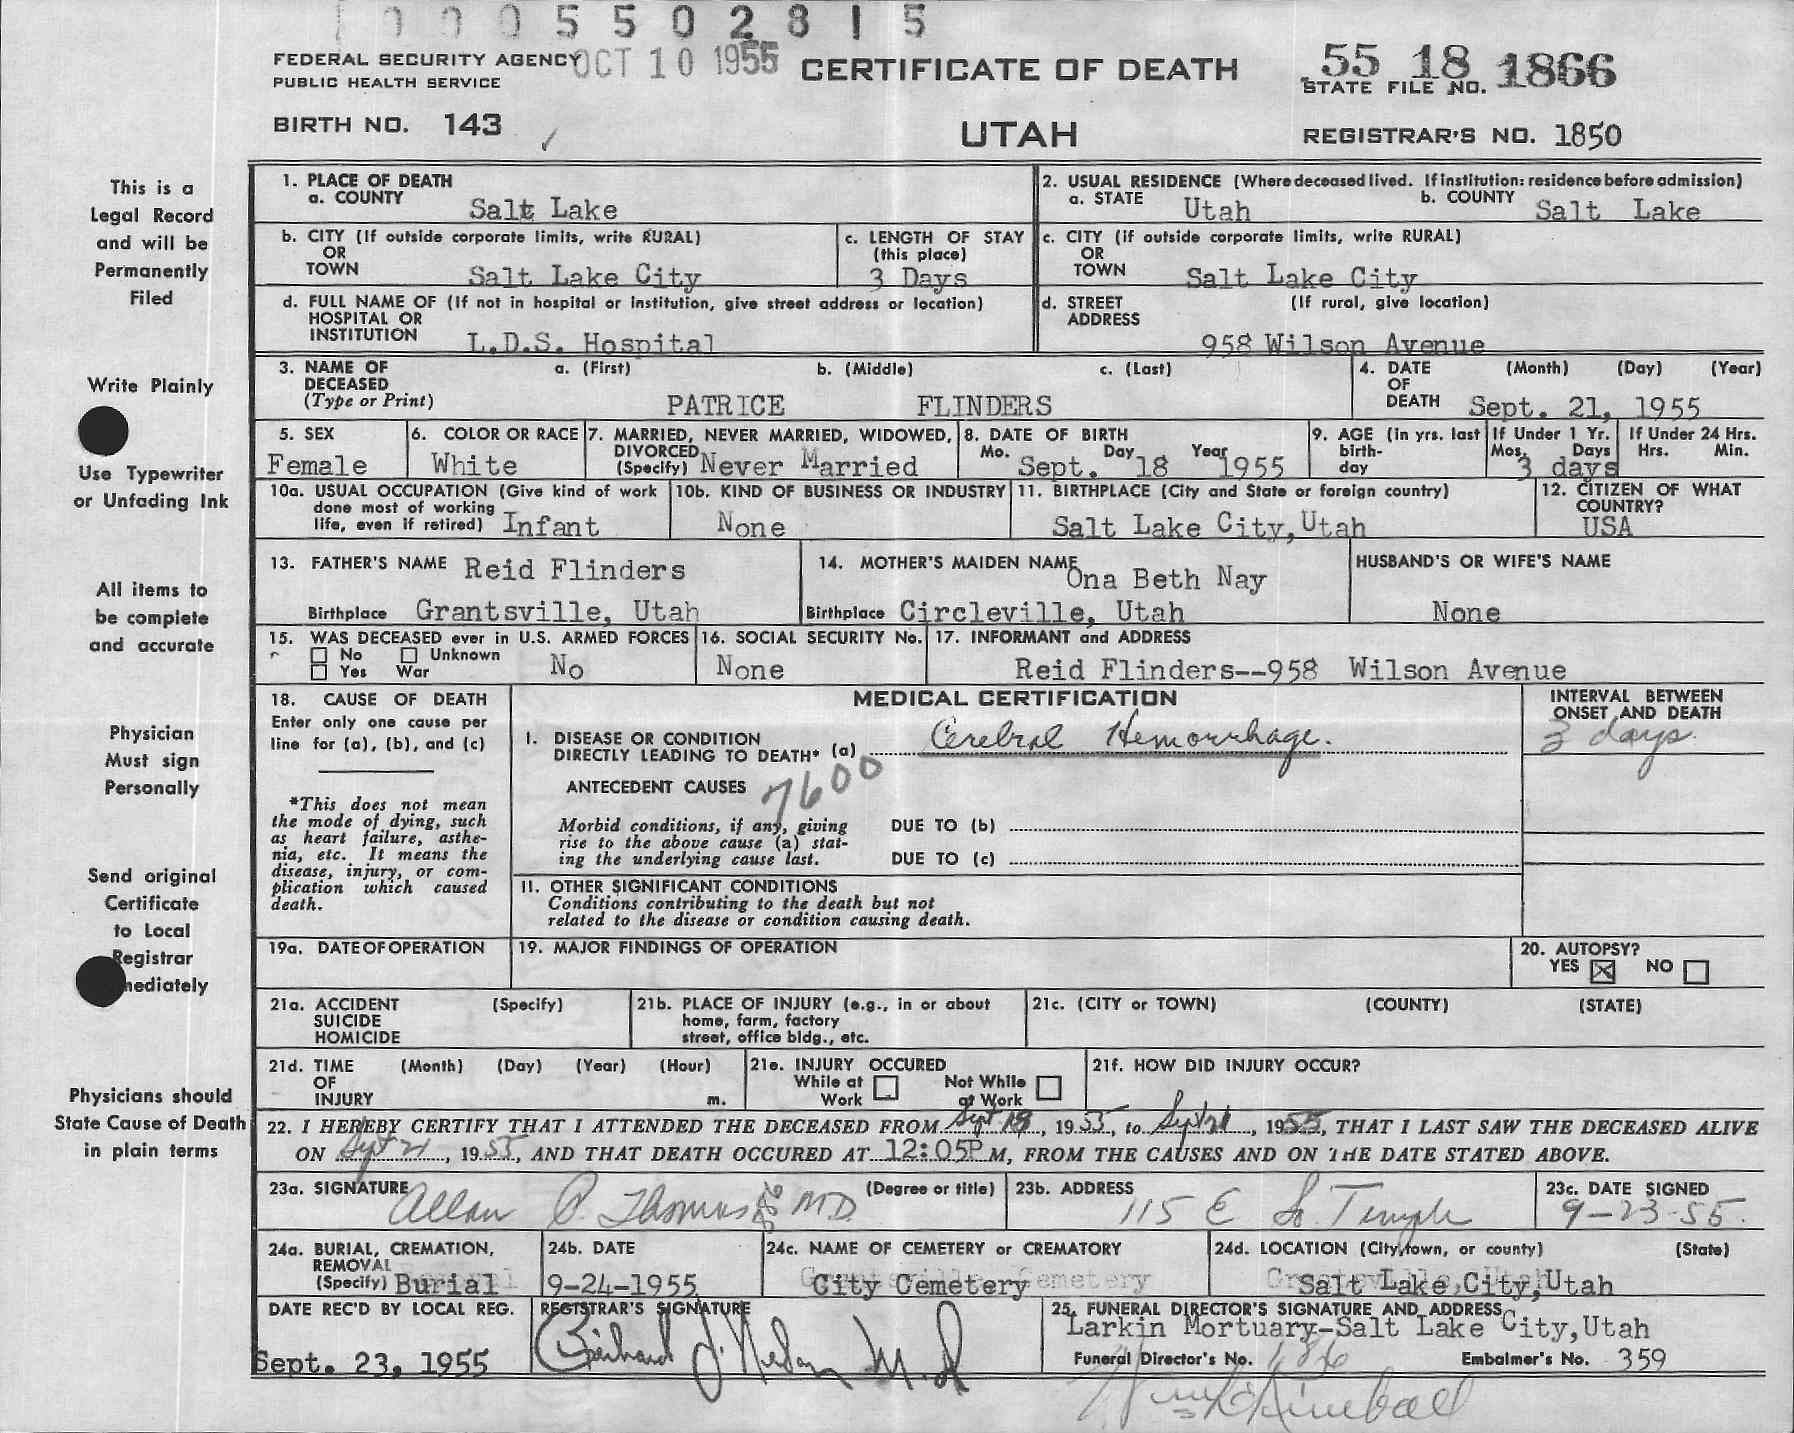 0 0 0 5 5 0 2 8 1 5
FEDERAL SECURITY AGENCY OCT 10 1955 CERTIFICATE OF DEATH 55 18 1866
PUBLIC HEALTH SERVICE STATE FILE NO.
BIRTH NO. 143 UTAH REGISTRAR'S NO. 1850
This is a
Legal Record
and will be
Permanently
Filed
Write Plainly
Use Typewriter
or Unfading Ink
All items to
be complete
and accurate
Physician
Must sign
Personally
Send original
Certificate
to Local
Registrar
mediately
Physicians should
State Cause of Death
in plain terms
1. PLACE OF DEATH
a. COUNTY Salt Lake
2. USUAL RESIDENCE (Where deceased lived. If institution: residence before admission)
a. STATE Utah b. COUNTY Salt Lake
b. CITY (If outside corporate limits, write RURAL)
OR
TOWN Salt Lake City
c. LENGTH OF STAY
(this place)
3 Days
c. CITY (if outside corporate limits, write RURAL)
OR
TOWN Salt Lake City
d. FULL NAME OF (If not in hospital or institution, give street address or location)
HOSPITAL OR
INSTITUTION L.D.S. Hospital
d. STREET (If rural, give location)
ADDRESS
958 Wilson Avenue
3. NAME OF a. (First) b. (Middle) c. (Last)
DECEASED
(Type or Print) PATRICE FLINDERS
4. DATE (Month) (Day) (Year)
OF
DEATH Sept. 21, 1955
5. SEX
Female
6. COLOR OR RACE
White
7. MARRIED, NEVER MARRIED, WIDOWED,
DIVORCED
(Specify) Never Married
8. DATE OF BIRTH
Mo. Day Year
Sept. 18 1955
9. AGE (in yrs. last
birth-
day
If Under 1 Yr.
Mos. Days
3 days
If Under 24 Hrs.
Hrs. Min.
10a. USUAL OCCUPATION (Give kind of work
done most of working
life, even if retired) Infant
10b. KIND OF BUSINESS OR INDUSTRY
None
11. BIRTHPLACE (City and State or foreign country)
Salt Lake City, Utah
12. CITIZEN OF WHAT
COUNTRY?
USA
13. FATHER'S NAME Reid Flinders
Birthplace Grantsville, Utah
14. MOTHER'S MAIDEN NAME Ona Beth Nay
Birthplace Circleville, Utah
HUSBAND'S OR WIFE'S NAME
None
15. WAS DECEASED ever in U.S. ARMED FORCES
No Unknown
Yes War No
16. SOCIAL SECURITY No.
None
17. INFORMANT and ADDRESS
Reid Flinders--958 Wilson Avenue
18. CAUSE OF DEATH
Enter only one cause per
line for (a), (b), and (c)
*This does not mean
the mode of dying, such
as heart failure, asthe-
nia, etc. It means the
disease, injury, or com-
plication which caused
death.
MEDICAL CERTIFICATION
INTERVAL BETWEEN
ONSET AND DEATH
3 days.
I. DISEASE OR CONDITION
DIRECTLY LEADING TO DEATH* (a) Cerebral Hemorrhage.
ANTECEDENT CAUSES 7600
Morbid conditions, if any, giving
rise to the above cause (a) stat-
ing the underlying cause last.
DUE TO (b)
DUE TO (c)
II. OTHER SIGNIFICANT CONDITIONS
Conditions contributing to the death but not
related to the disease or condition causing death.
19a. DATE OF OPERATION
19. MAJOR FINDINGS OF OPERATION
20. AUTOPSY?
YES NO
21a. ACCIDENT (Specify)
SUICIDE
HOMICIDE
21b. PLACE OF INJURY (e.g., in or about
home, farm, factory
street, office bldg., etc.
21c. (CITY or TOWN) (COUNTY) (STATE)
21d. TIME (Month) (Day) (Year) (Hour)
OF
INJURY m.
21e. INJURY OCCURED
While at Not While
Work at Work
21f. HOW DID INJURY OCCUR?
22. I HEREBY CERTIFY THAT I ATTENDED THE DECEASED FROM Sept 18, 1955, to Sept 21, 1955, THAT I LAST SAW THE DECEASED ALIVE
ON Sept 21, 1955, AND THAT DEATH OCCURED AT 12:05P M, FROM THE CAUSES AND ON THE DATE STATED ABOVE.
23a. SIGNATURE (Degree or title)
Allan P. Thomas M.D.
23b. ADDRESS
115 E So. Temple
23c. DATE SIGNED
9-23-55.
24a. BURIAL, CREMATION,
REMOVAL
(Specify) Burial
24b. DATE
9-24-1955
24c. NAME OF CEMETERY or CREMATORY
City Cemetery
24d. LOCATION (City, town, or county) (State)
Salt Lake City, Utah
DATE REC'D BY LOCAL REG.
Sept. 23, 1955
REGISTRAR'S SIGNATURE
M.D.
25. FUNERAL DIRECTOR'S SIGNATURE AND ADDRESS
Larkin Mortuary-Salt Lake City, Utah
Funeral Director's No. 186 Embalmer's No. 359
Kimball